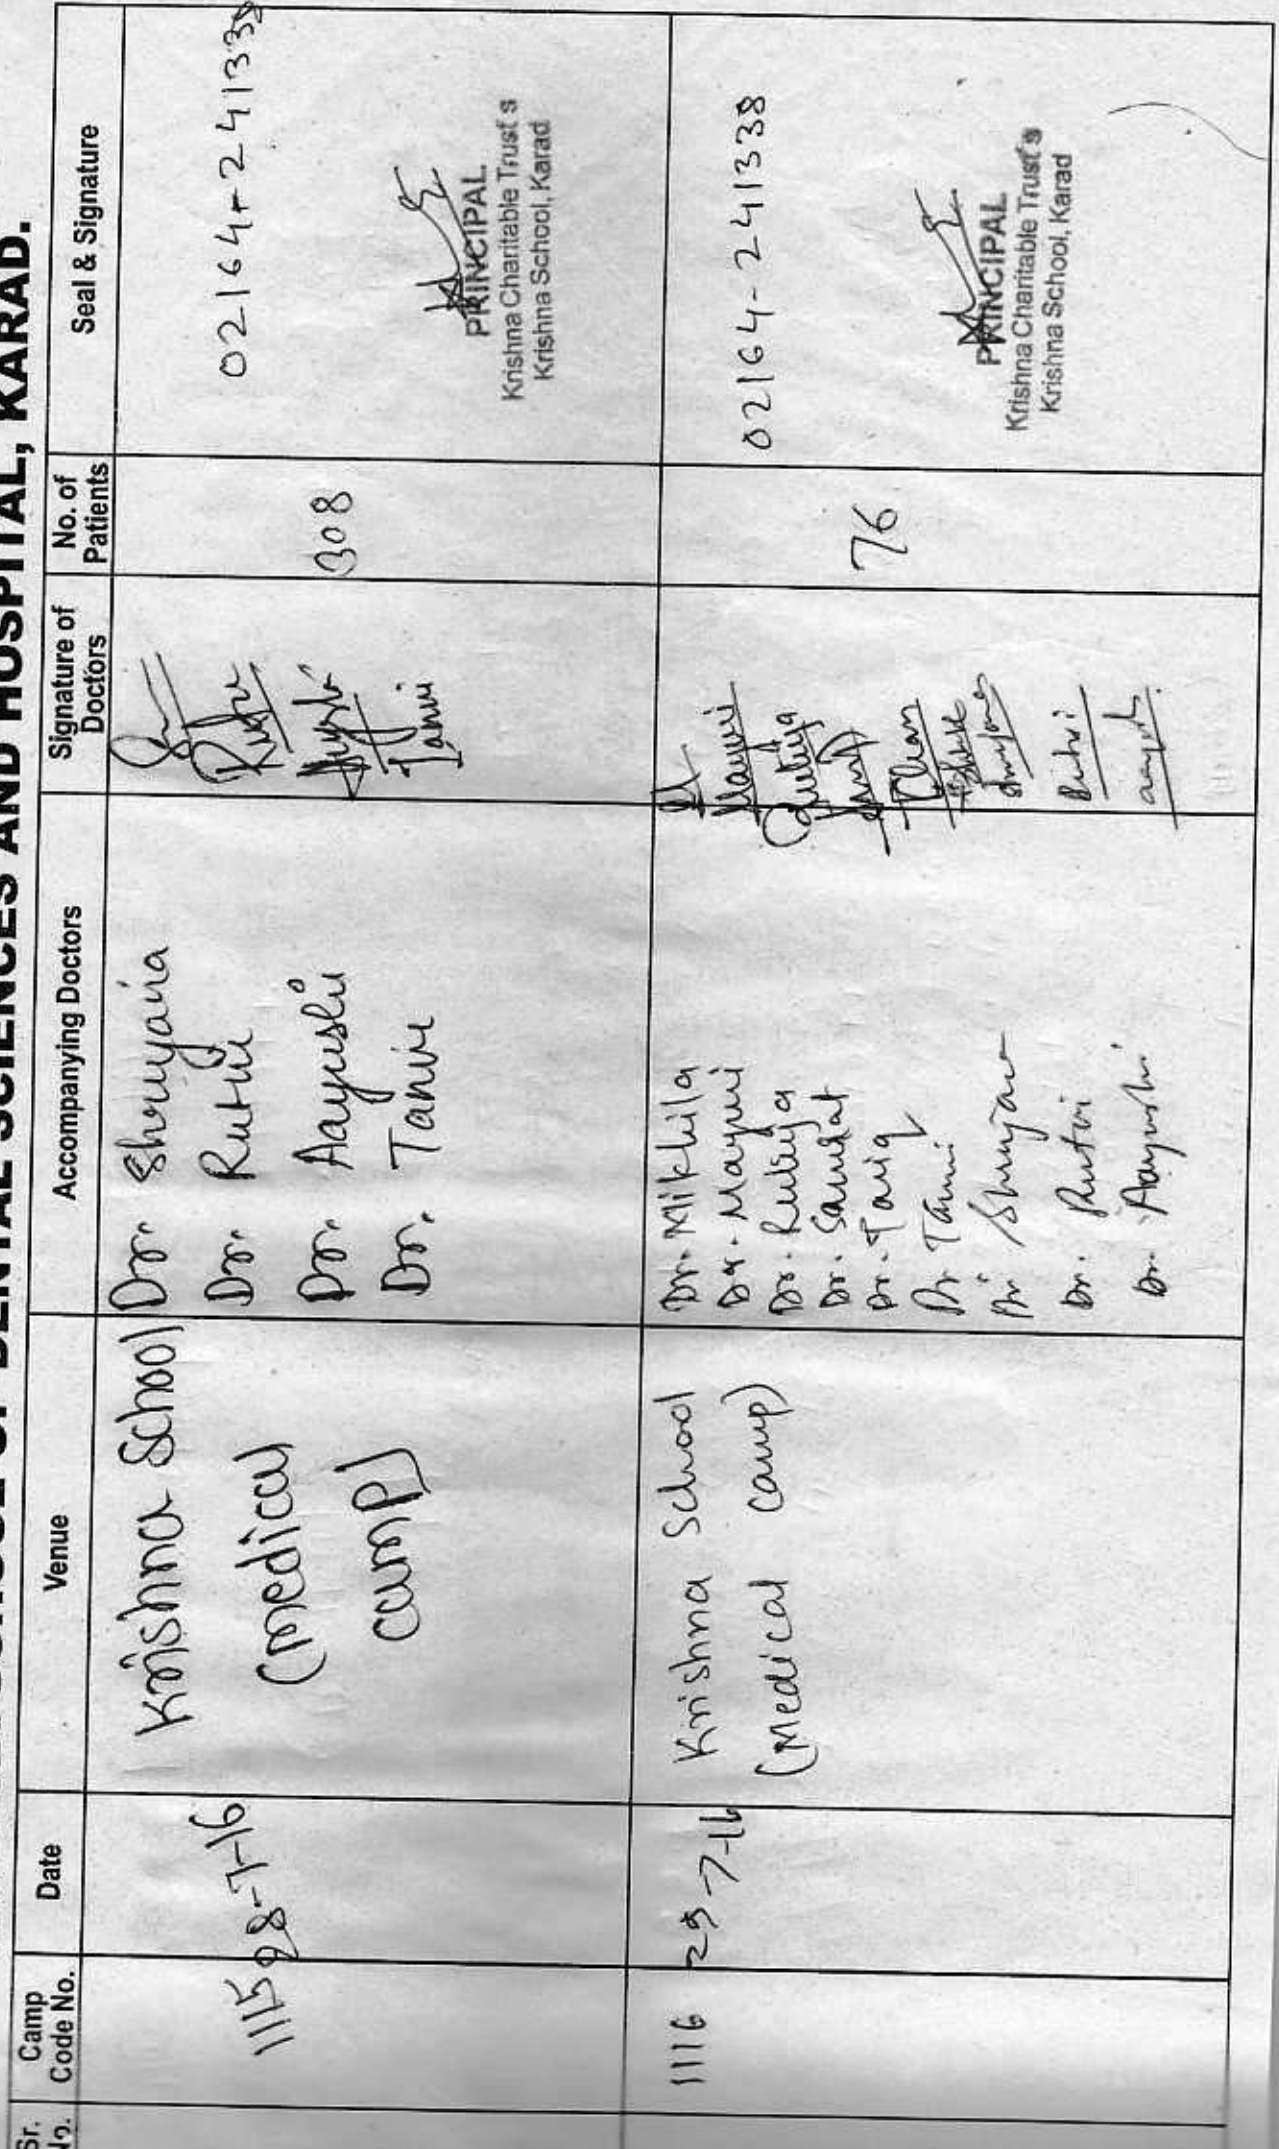 DENTAL SCIENCES AND HOSPITAL, KARAD.
Sr. No.
Camp Code No.
Date
Venue
Accompanying Doctors
Signature of Doctors
No. of Patients
Seal & Signature
1115
28-7-16
Krishna School
(Medical
camp)
Dr. Shruyana
Dr. Rutvi
Dr. Aayushi
Dr. Tanvi
Tanvi
308
02164-241338
PRINCIPAL
Krishna Charitable Trust's
Krishna School, Karad
1116
29-7-16
Krishna School
(Medical camp)
Dr. Nikhila
Dr. Mayuri
Dr. Rutuja
Dr. Samrat
Dr. Tariq
Dr Tanvi
Dr Shruyana
Dr. Rutvi
Dr. Aayushi
Mayuri
76
02164-241338
PRINCIPAL
Krishna Charitable Trust's
Krishna School, Karad